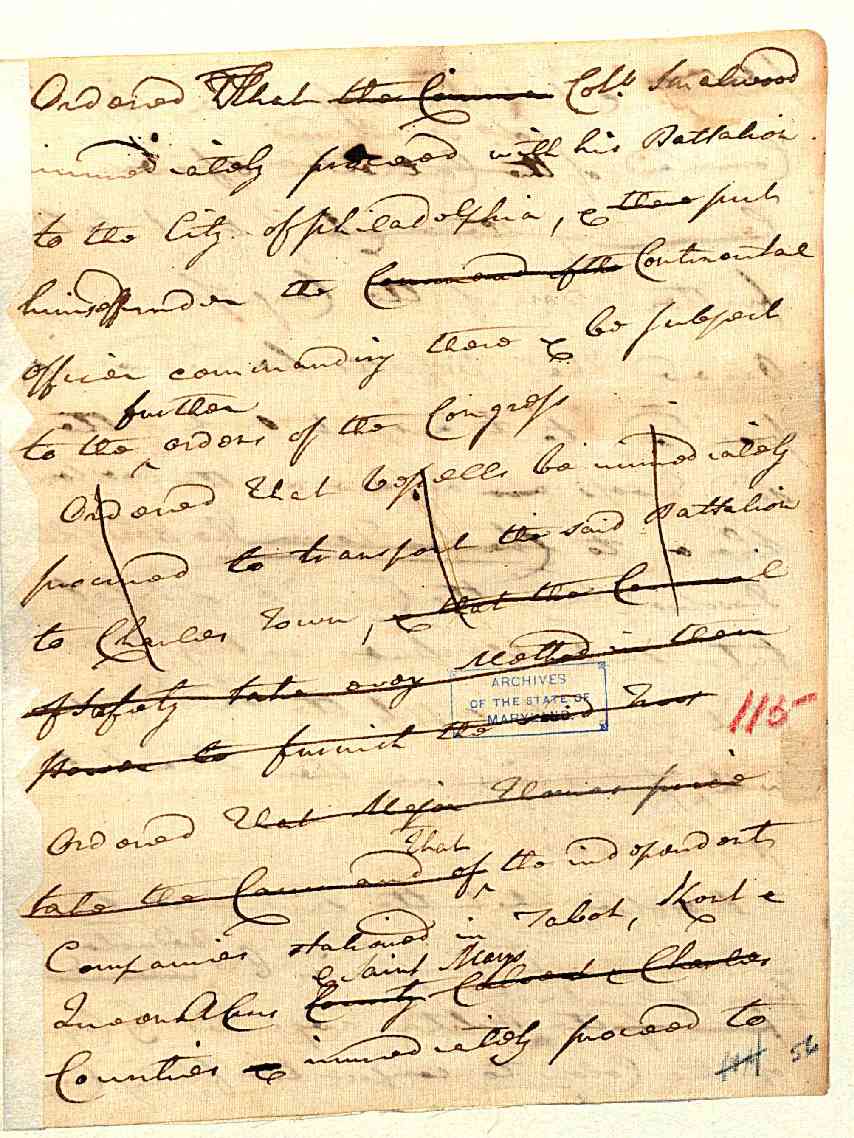 Ordered That the Comma Col.º Smalwood
immediately proceed with his Battalion
to the City of philadelphia, & there put
himself under the Command of the Continental
officer commanding there & be subject
further
to the ^ orders of the Congress
Ordered that Vessells be immediately
procured to transport the said Battalion
to Charles Town, & that the Council
of Safety take every Method in their
power to furnish the said Troo
ARCHIVES
OF THE STATE OF
MARYLAND
115
Ordered that Major Thomas price
That
take the Command of ^ the independent
Companies stationed in Talbot, Kent &
& Saint Marys
Queen Anns County Calvert & Charles
Counties & immediately proceed to
114 56